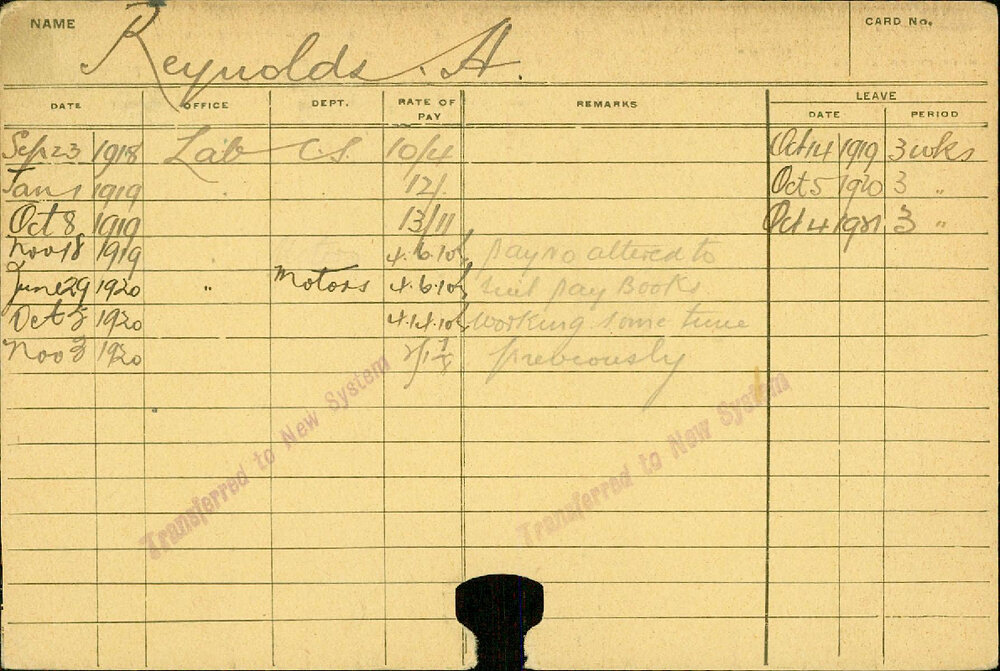 NAME
Reynolds. A.
CARD No.
DATE OFFICE DEPT. RATE OF PAY REMARKS LEAVE
DATE PERIOD
Sep 23 1918 Lab C.S. 10/4 Oct 14 1919 3 wks
Jan 1 1919 12/. Oct 5 1920 3 "
Oct 8 1919 13/11 Oct 4 1921 3 "
Nov 18 1919 4.6.10½ pay no altered to
June 29 1920 " Motors 4.6.10½ suit pay Books
Oct 5 1920 4.14.10½ working some time
Nov 3 1920 previously
Transferred to New System
Transferred to New System